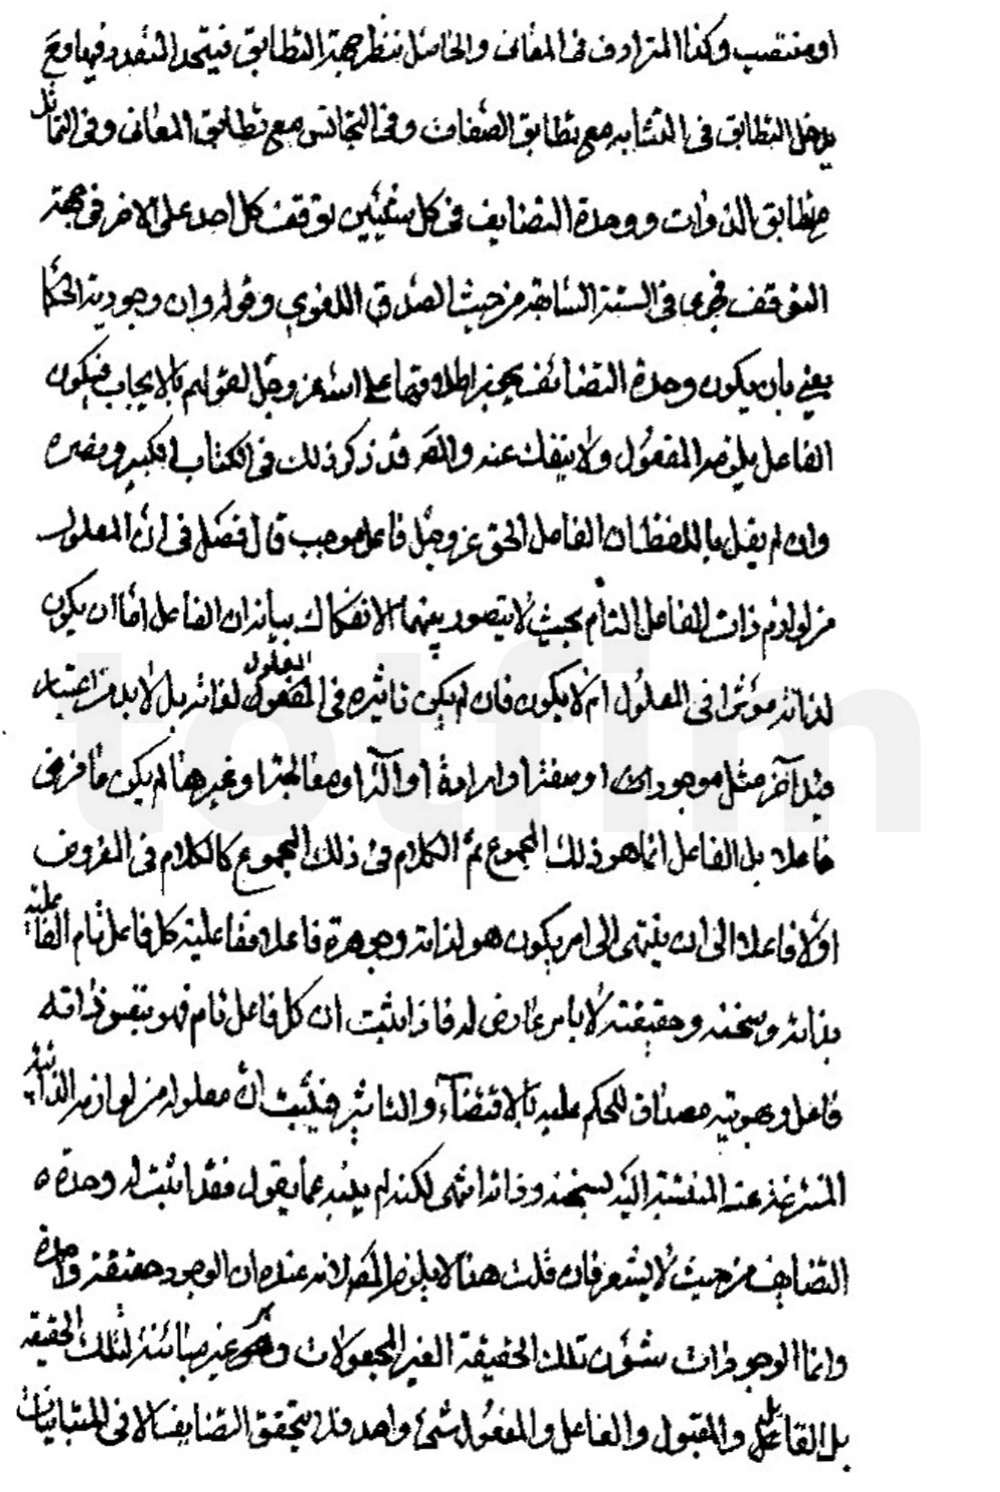 او منتصب وكذا المترادف فى المعانى والحاصل ننظر جهة التطابق فيتحد المتعدد فيها ومع
يدخل التطابق فى التشابه مع تطابق الصفات وفى التجانس مع تطابق المعانى وفى التماثل
مع تطابق الذوات ووحدة التضايف فى كل شيئين توقف كل احد على الاخر فى جهة
التوقف فيجرى فى الستة السابقة من حيث الصدق اللغوي وقوله وان وجودية الحكماء
يعني بان يكون وحدة التضائف يجوز اطلاقها على الله عز وجل لقولهم بالايجاب فيكون
الفاعل يلزمه المفعول ولا ينفك عنه والمص قد ذكر ذلك فى الكتاب الكبير وغيره
وان لم يقبل باللفظ ان الفاعل الحق عز وجل فاعل موجب قال فصل فى ان المعلول
من لوازم ذات الفاعل التام بحيث لا يتصور بينهما الانفكاك بيانه ان الفاعل اما ان يكون
لذاته مؤثرا فى المعلول ام لا يكون فان لم يكن تاثيره فى المعلول لذاته بل لا بد من اعتبار
قيد آخر مثل موجود ان او صفة او ارادة او آلة او مصالحة او غيرها لم يكن ما فرض
فاعلا بل الفاعل انما هو ذلك المجموع ثم الكلام فى ذلك المجموع كالكلام فى المفروض
اولا فاعلا الى ان ينتهى الى امر يكون هو لذاته وجوهره فاعلا ففاعلية كل فاعل تام الفاعلية
بذاته وسنخه وحقيقته لا بامر عارض له فاذا ثبت ان كل فاعل تام فهو بنفس ذاته
فاعل وهويته مصداق للحكم عليه بالاقتضاء والتاثير فيثبت ان معلوله من لوازمه الذاتية
المنتزعة عنه المنتسبة اليه لسنخه وذاته انتهى لكنه لم ينبه عما يقول فقد اثبت له وحدة
التضايف من حيث لا يشعر فان قلت هذا لا يلزم المص لانه عنده ان الوجود حقيقة واحدة
وانما الوجودات شؤن تلك الحقيقة الغير المجعولات وهى غير مباينة لتلك الحقيقة
بل القابل والمقبول والفاعل والمفعول شئ واحد فلا يتحقق التضايف الا فى المتباينات